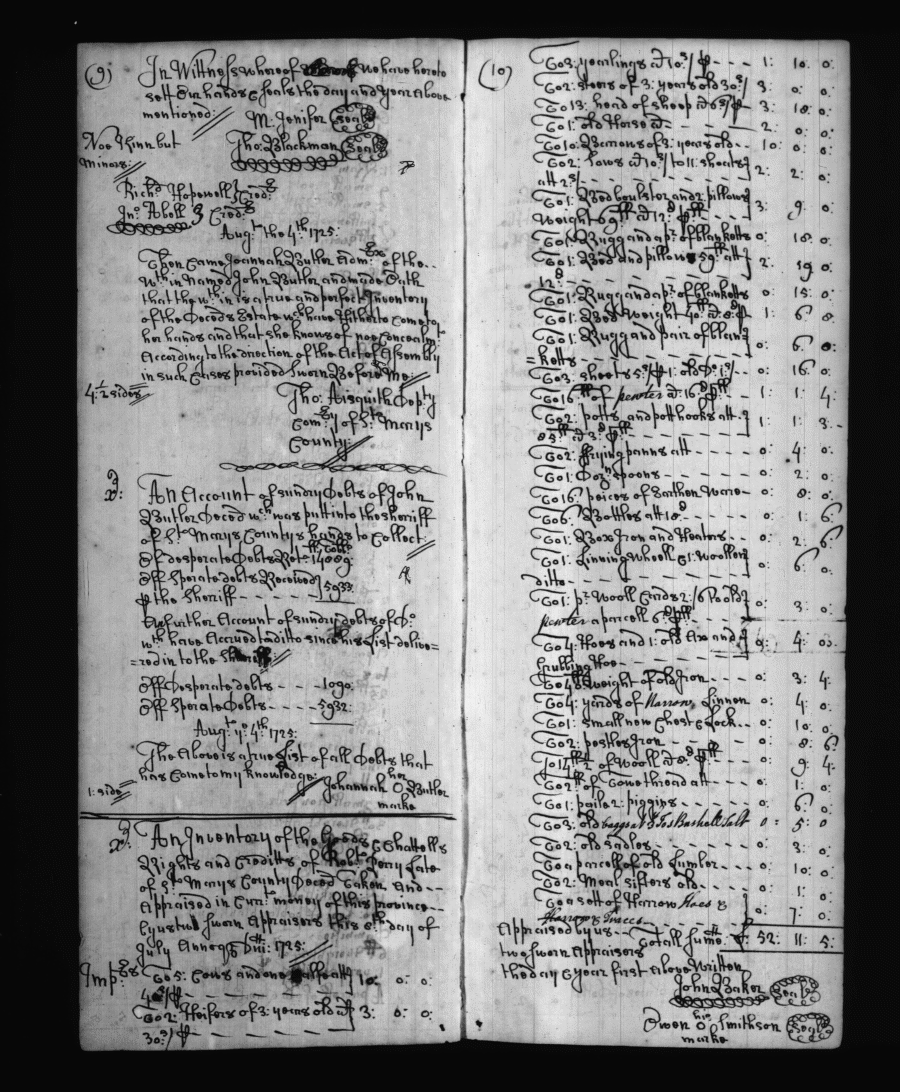 (9) In Wittness whereof we have hereto
sett our hands & seals the day and year Above
mentioned:
M: Jenifer Seal
Tho: Blackman Seal
Noe Kinn but
minors:
Richd: Hopewell } Credrs
Jno: Abell } Credrs
Augt. the 4th. 1725:
Then Came Joannah Butler Admx. of the
wth.in Named John Butler and made Oath
that the wth.in is a true and perfect Inventory
of the Deceds Estate wch. have hitherto Come to
her hands and that she knows of noe Concealmt:
According to the direction of the Act of Assembly
in such Cases provided Sworn Before Me:
4½ sides
Tho: Aisquith Depty
Comry. of St. Marys
County:
An Account of sundry Debts of John
Butler Deced wch. was putt into the sheriff
of St. Marys Countys hands to Collect:
Off desperate Debts
Off Sperate debts Received
the Sheriff 5933
A further Account of sundry debts of Do:
wch. have Accrued to ditto since his List delive=
=red in to the Sheriff
Off Desperate debts - - - 1090:
Off Sperate Debts - - - 5932:
Augt. ye. 4th. 1725:
The Above is a true List of all Debts that
has Come to my knowledge:
1: side
her
Johannah O Butler
marke
An Inventory of the Goods & Chattells
Rights and Creditts of Robt: Perry Late
of St. Marys County Deced Taken And
Appraised in Currt. money of this province
By us two sworn Appraisers this 6th. day of
July 1725:
Imprs To 5: Cows and one Calfe att 10: 0: 0:
40s/
To 2: Heifers of 3: years old att 3: 0: 0:
30s/
(10) To 3: yearlings @ 10s/ 1: 10: 0:
To 2: steers of 3: years old 30s/ 3: 0: 0:
To 13: head of sheep @ 6s/ 3: 18: 0:
To 1: old Horse @ 2: 0: 0:
To 10: Barrows of 3: years old 10: 0: 0:
To 2: Sows @ 10s/ to 11: shoats 2: 2: 0:
att 2s/
To 1: Bed boulster and 2: pillows 3: 9: 0:
Weight 69
To 1: Rugg and a pr. of blanketts 0: 18: 0:
To 1: Bed and pillows 59 att 2: 19: 0:
12d
To 1: Rugg and a pr. of blanketts 0: 15: 0:
To 1: Bed Weight 40: @ 8d 1: 6: 8:
To 1: Rugg and pair of blan 0: 6: 0:
=ketts
To 3: sheets 5s/ 1: old Do: 1s/ 0: 16: 0:
To 16 of pewter @ 16d 1: 1: 4:
To 2: potts and potthooks att 1: 1: 3:
85 @ 3d
To 2: frying panns att 0: 4: 0:
To 1: Dozn spoons 0: 2: 0:
To 16: peices of Earthen Ware 0: 8: 0:
To 6: Bottles att 18d 0: 1: 6:
To 1: Box Iron and Heaters 0: 2: 6:
To 1: Linning wheell & 1: woollen 0: 6: 0:
ditto
To 1: pr. Wooll Cards 2:/6 To old 0: 3: 0:
pewter a parcell 6d
To 4: Hoes and 1: old Axe and 0: 4: 00:
Grubbing Hoe
weight of old Iron 0: 3: 4:
To 4: yards of Narrow Linnen 0: 4: 0:
To 1: small new Chest & Lock 0: 10: 0:
To 2: pestles Iron 0: 8: 6:
of Wooll @ 8d 0: 9: 4:
To 2 of Towe thread att 0: 1: 0:
To 1: pail 2: piggins 0: 6: 0:
To 3: old baggs Bashall Salt 0: 5: 0
To 2: old sadles 0: 3: 0:
To a parcell of old Lumber 0: 10: 0:
To 2: Meal sifters old 0: 1: 0:
To a sett of Harrow Hoes & 0: 7: 0:
Harrow & Traces
Appraised by us Totall Sume £: 52: 11: 5:
two sworn Appraisers
the day & year first Above Written
John Baker Seal
his
Owen O Smithson Seal
marke